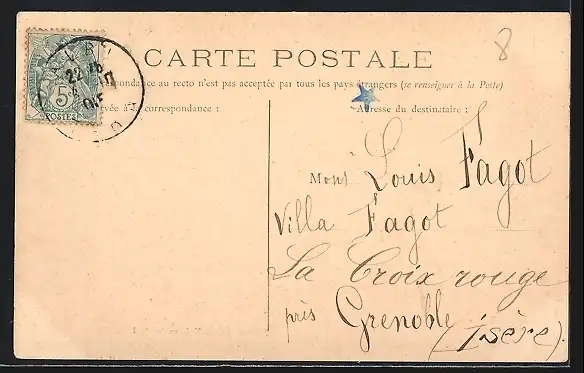 8
CARTE POSTALE
pondance au recto n'est pas acceptée par tous les pays étrangers (se renseigner à la Poste)
vée à la correspondance :
Adresse du destinataire :
5
POSTES
22
Mons Louis Fagot
Villa Fagot
La Croix rouge
près Grenoble
(Isère)